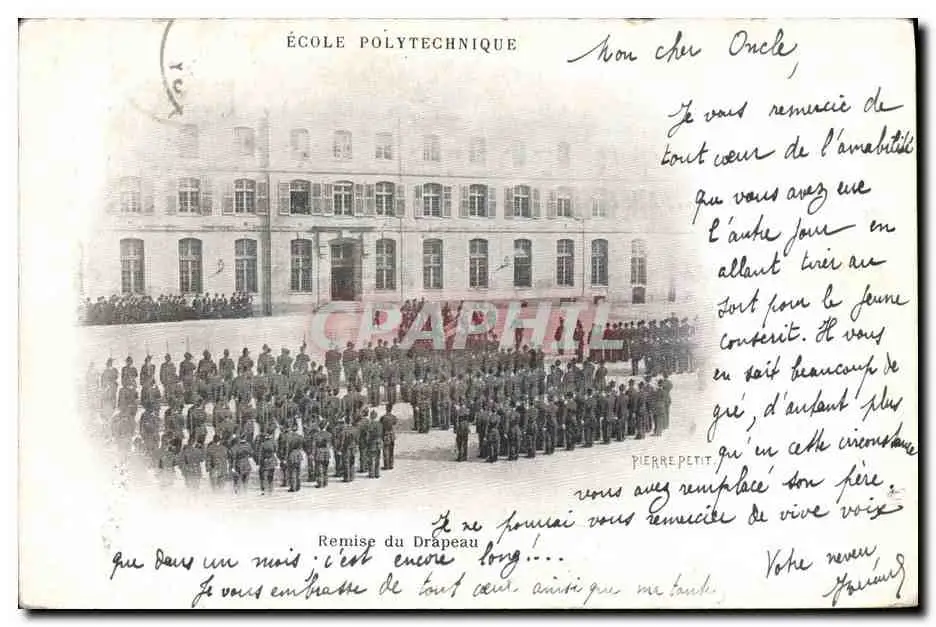 ÉCOLE POLYTECHNIQUE
Mon cher Oncle,
Je vous remercie de
tout cœur de l'amabilité
que vous avez eue
l'autre jour en
allant tirer au
sort pour le jeune
conscrit. Il vous
en sait beaucoup de
gré, d'autant plus
qu'en cette circonstance
vous avez remplacé son père.
Je ne pourrai vous remercier de vive voix
que dans un mois; c'est encore long!....
Je vous embrasse de tout cœur ainsi que ma tante,
Votre neveu,
PIERRE PETIT.
Remise du Drapeau
CPAPHIL